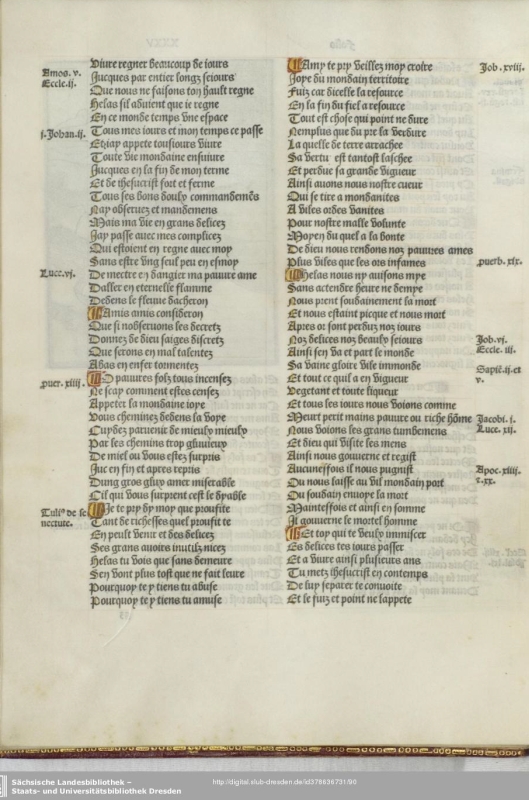 Viure regner beaucoup de iours
Amos. v.
Jucques par entier longz seiours
Eccle.ii.
Que nous ne faisons ton hault regne
Helas sil aduient que ie regne
En ce monde temps vne espace
i. Johan. ii.
Tous mes iours et mon temps ce passe
Et iay appete tousiours viure
Toute vie mondaine ensuiure
Jucques en la fin de mon terme
Et de thesucrist foit et ferme
Tous ses bons doulx commandemēs
Nay obseruez et mandemens
Mais ma vie en grans delices
Jay passe auec mes complices
Qui estoient en regne auec moy
Sans estre vng seul peu en esmoy
Luce. vi.
De mectre en dangier ma pauure ame
Daller en eternelle flamme
Dedens le fleuue dacheron
Amis amis consideron
Que si nobseruons les decretz
Donnez de dieu saiges discretz
Que serons en mal talentez
A bas en enfer tormentez
puer. xiiii.
O pauures folz tous incensez
Ne scay comment estes censez
Appeter la mondaine ioye
Vous cheminez dedens la voye
Cuydez paruenir de mieulx mieulx
Par les chemins trop gluuieux
De miel ou vous estez surpris
Juc en fin et apres repris
Dung gros glux amer miserable
Cil qui vous surprent cest le dyable
Tuliᵒ de se
nectute.
Je te pry dy moy que proufite
Tant de richesses quel proufit te
En peult venir et des delicez
Ses grans auoirs inutilz nicez
Helas tu vois que sans demeure
Sen vont plus tost que ne fait leure
Pourquoy te y tiens tu abuse
Pourquoy te y tiens tu amuse
Amy te pry veillez moy croire
Job. xviii.
Joye du mondain territoire
Fuiz car dicelle la resource
En la fin du fiel a resource
Tout est chose qui point ne dure
Nemplus que du pre la verdure
La quelle de terre arrachee
Sa vertu est tantost laschee
Et perdue sa grande vigueur
Ainsi auons nous nostre cueur
Qui se tire a mondanites
A viles ordes vanites
Pour nostre malle volunte
Moyen du quel a la bonte
De dieu nous rendons noz pauures ames
Plus viles que les ors infames
puerb. xix.
Helas nous ny auisons mye
Sans actendre heure ne demye
Nous prent soudainement la mort
Et nous estaint picque et nous mort
Apres or sont perduz noz iours
Noz delices noz beaulx seiours
Job. vi.
Ainsi sen va et part le monde
Eccle. iii.
Sa vaine gloire vile immonde
Sapiē. ii. et
v.
Et tout ce quil a en vigueur
Vegetant et toute liqueur
Et tous les iours nous voions comme
Meurt petit mains pauure ou riche hōme
Jacobi. i.
Nous voions les grans tumbemens
Luce. xii.
Et dieu qui visite les mens
Ainsi nous gouuerne et regist
Aucuneffois il nous pugnist
Apoc. xiiii.
Ou nous laisse au vil mondain port
et. xx.
Ou soudain enuoye la mort
Mainteffois et ainsi en somme
Il gouuerne le mortel homme
Et toy qui te veulx immiscer
Es delices tes iours passer
Et a viure ainsi plusieurs ans
Tu metz ihesucrist en contemps
De luy separer te conuoite
Et le fuiz et point ne lappete
Sächsische Landesbibliothek –
Staats- und Universitätsbibliothek Dresden
http://digital.slub-dresden.de/id378636731/90